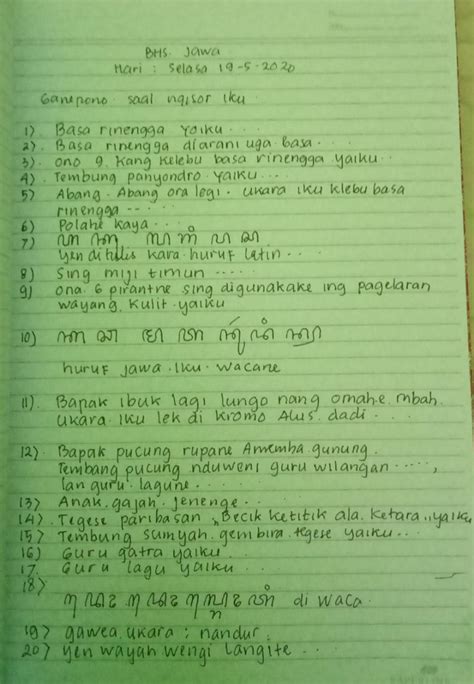 BHS. Jawa
Hari : Selasa 19-5-2020
Ganepono soal ngisor iku
1). Basa rinengga yaiku . . .
2). Basa rinengga diarani uga basa . . .
3). ono 9. Kang kelebu basa rinengga yaiku . . .
4). Tembung panyondro yaiku . . .
5) Abang - Abang ora legi . ukara iku klebu basa
rinengga . . . .
6) Polahe kaya . . .
7)
Yen ditulis kara huruf Latin . . .
8) Sing miji timun . . . .
9) ona 6 pirantne sing digunakake ing pagelaran
wayang kulit yaiku
10)
huruf jawa iku wacane
11). Bapak ibuk lagi lungo nang omahe mbah.
ukara iku lek di kromo Alus dadi . . .
12) Bapak pucung rupane Amemba gunung.
Tembang pucung nduweni guru wilangan . . . . ,
lan guru lagune . . . .
13) Anak gajah jenenge . . .
14) . Tegese paribasan , Becik ketitik ala ketara ,, yaiku
15) Tembung sumyah gembira tegese yaiku . . .
16) Guru gatra yaiku . . .
17 Guru lagu yaiku . . .
18)
di waca .
19) gawea ukara : nandur .
20) yen wayah wengi langite . . .